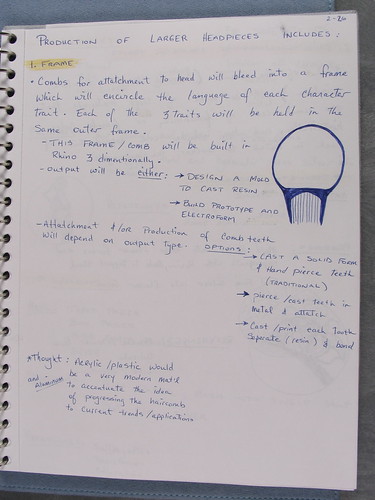 2-26
PRODUCTION OF LARGER HEADPIECES INCLUDES:
1. FRAME
• Combs for attatchment to head will bleed into a frame
which will encircle the language of each character
trait. Each of the 3 traits will be held in the
same outer frame.
- THIS FRAME/COMB will be built in
Rhino 3 dimentionally.
- Output will be either: → DESIGN A MOLD
TO CAST RESIN
→ BUILD PROTOTYPE AND
ELECTROFORM
- Attatchment &/or Production of comb teeth
will depend on output type. OPTIONS:
→ CAST A SOLID FORM
& Hand pierce teeth
(TRADITIONAL)
→ pierce/cast teeth in
metal & attatch
→ Cast/print each tooth
separate (resin) & bond
*Thought: Acrylic/plastic would
and aluminum
be a very modern mat'l
to accentuate the idea
of progressing the haircomb
to current trends/applications